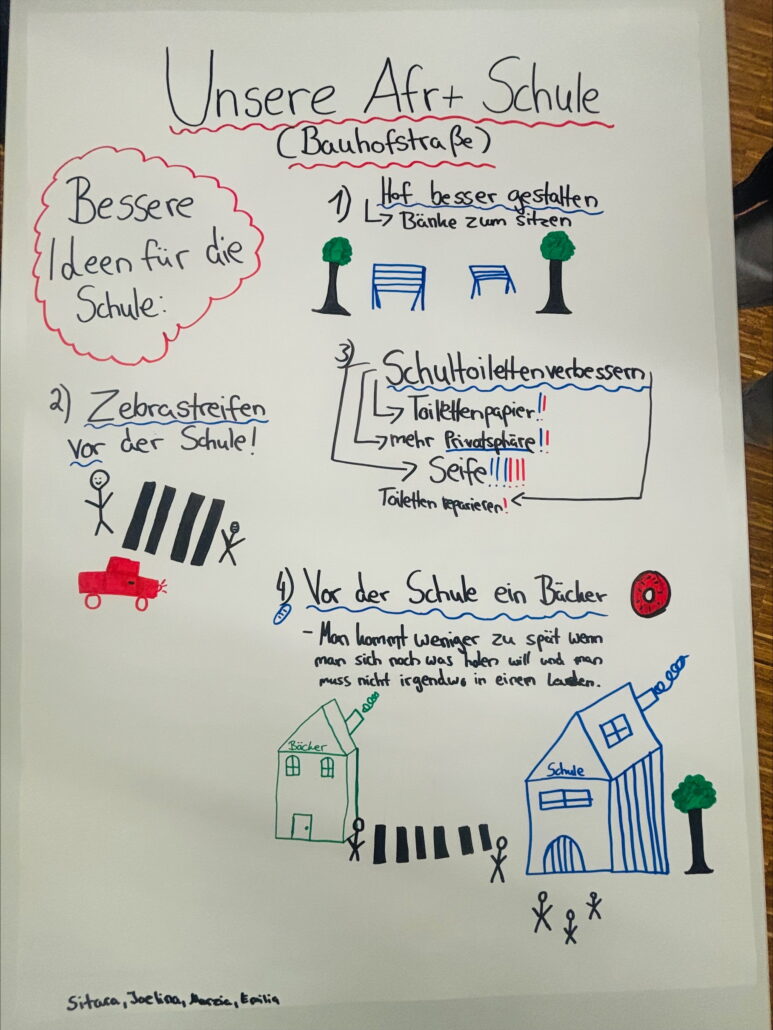 Unsere Afr+ Schule
(Bauhofstraße)
Bessere
Ideen für die
Schule:
1) Hof besser gestalten
Bänke zum sitzen
2) Zebrastreifen
vor der Schule!
3) Schultoiletten verbessern
Toilettenpapier!!
mehr Privatsphäre!!
Seife!!!!!!
Toiletten reparieren!
4) Vor der Schule ein Bäcker
- Man kommt weniger zu spät wenn
man sich noch was holen will und man
muss nicht irgendwo in einem Laden.
Bäcker
Schule
Sitara, Joelina, Marzia, Emilia